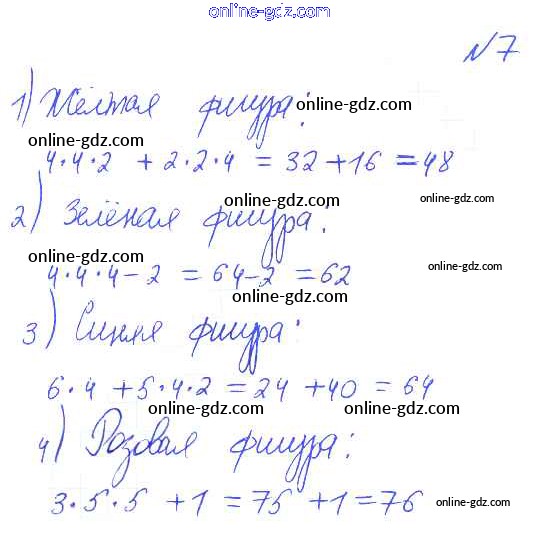 online-gdz.com
№7
1) Жёлтая фигура: online-gdz.com
online-gdz.com
4·4·2 + 2·2·4 = 32+16 = 48
online-gdz.com online-gdz.com
2) Зелёная фигура:
online-gdz.com online-gdz.com
4·4·4-2 = 64-2 = 62
online-gdz.com
3) Синяя фигура:
6·4 + 5·4·2 = 24 + 40 = 64
online-gdz.com online-gdz.com
4) Розовая фигура:
3·5·5 + 1 = 75 + 1 = 76 online-gdz.com